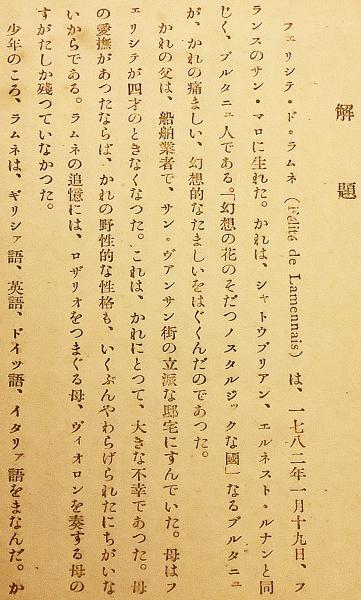 解題
フェリシテ・ド・ラムネ (Félité de Lamennais) は、一七八二年一月十九日、フ
ランスのサン・マロに生れた。かれは、シャトウブリアン、エルネスト・ルナンと同
じく、ブルタニュ人である。「幻想の花のそだつノスタルジックな國」なるブルタニュ
が、かれの痛ましい、幻想的なたましいをはぐくんだのであつた。
かれの父は、船舶業者で、サン・ヴアンサン街の立派な邸宅にすんでいた。母はフ
ェリシテが四才のときなくなつた。これは、かれにとつて、大きな不幸であつた。母
の愛撫があつたならば、かれの野性的な性格も、いくぶんやわらげられたにちがいな
いからである。ラムネの追憶には、ロザリオをつまぐる母、ヴィオロンを奏する母の
すがたしか残つていなかつた。
少年のころ、ラムネは、ギリシァ語、英語、ドイッ語、イタリァ語をまなんだ。か